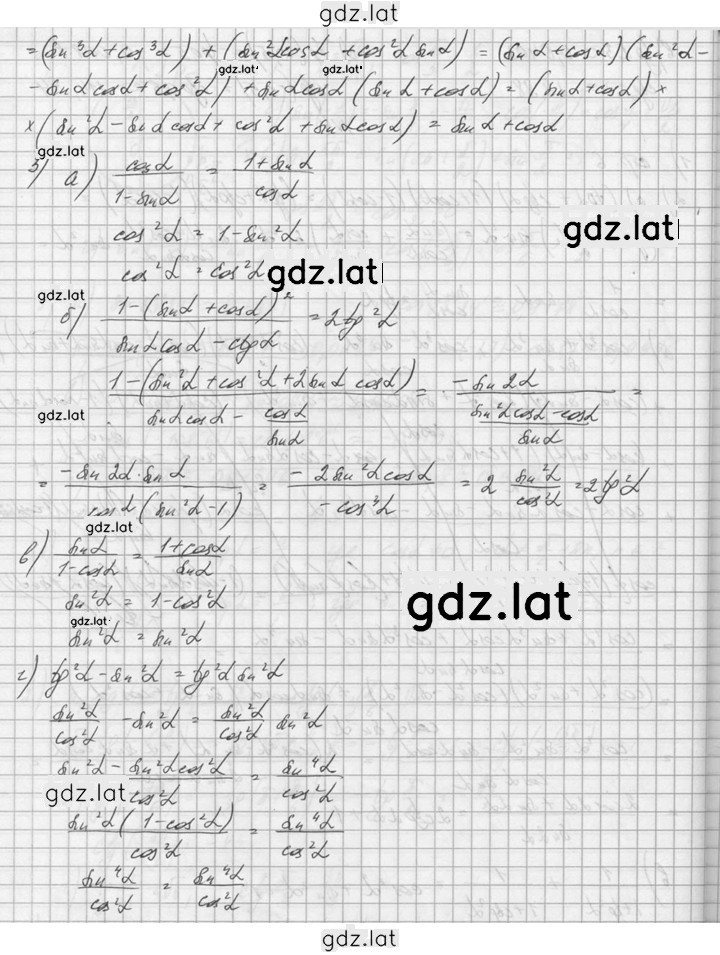 gdz.lat
= (sin³α + cos³α) + (sin²α cosα + cos²α sinα) = (sinα + cosα)(sin²α −
gdz.lat gdz.lat
− sinα cosα + cos²α) + sinα cosα (sinα + cosα) = (sinα + cosα) ×
× (sin²α − sinα cosα + cos²α + sinα cosα) = sinα + cosα
gdz.lat
3) а) cosα / (1 − sinα) = (1 + sinα) / cosα
cos²α = 1 − sin²α
gdz.lat
cos²α = cos²α
gdz.lat
gdz.lat
б) (1 − (sinα + cosα)²) / (sinα cosα − ctgα) = 2tg²α
(1 − (sin²α + cos²α + 2sinα cosα)) / (sinα cosα − cosα / sinα) = −sin2α / ((sin²α cosα − cosα) / sinα) =
gdz.lat
= −sin2α · sinα / (cosα (sin²α − 1)) = −2sin²α cosα / −cos³α = 2 sin²α / cos²α = 2tg²α
gdz.lat
в) sinα / (1 − cosα) = (1 + cosα) / sinα
sin²α = 1 − cos²α
gdz.lat
gdz.lat
sin²α = sin²α
г) tg²α − sin²α = tg²α sin²α
sin²α / cos²α − sin²α = sin²α / cos²α sin²α
gdz.lat
(sin²α − sin²α cos²α) / cos²α = sin⁴α / cos²α
gdz.lat
sin²α (1 − cos²α) / cos²α = sin⁴α / cos²α
sin⁴α / cos²α = sin⁴α / cos²α
gdz.lat